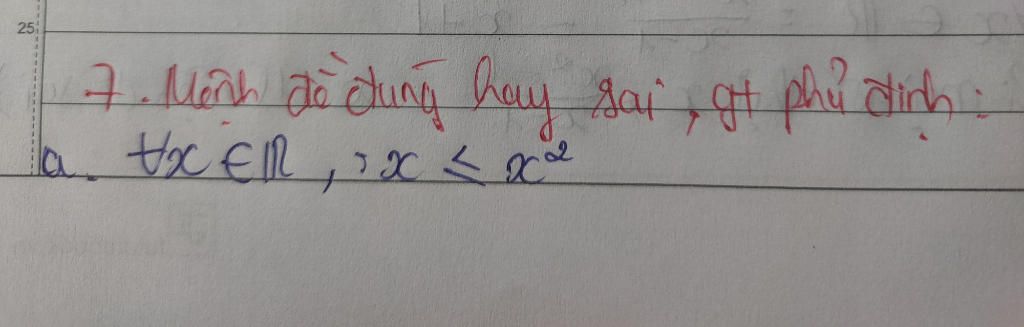 25
7. Mệnh đề đúng hay sai, gt phủ định:
a. ∀x ∈ ℝ, : x ≤ x²